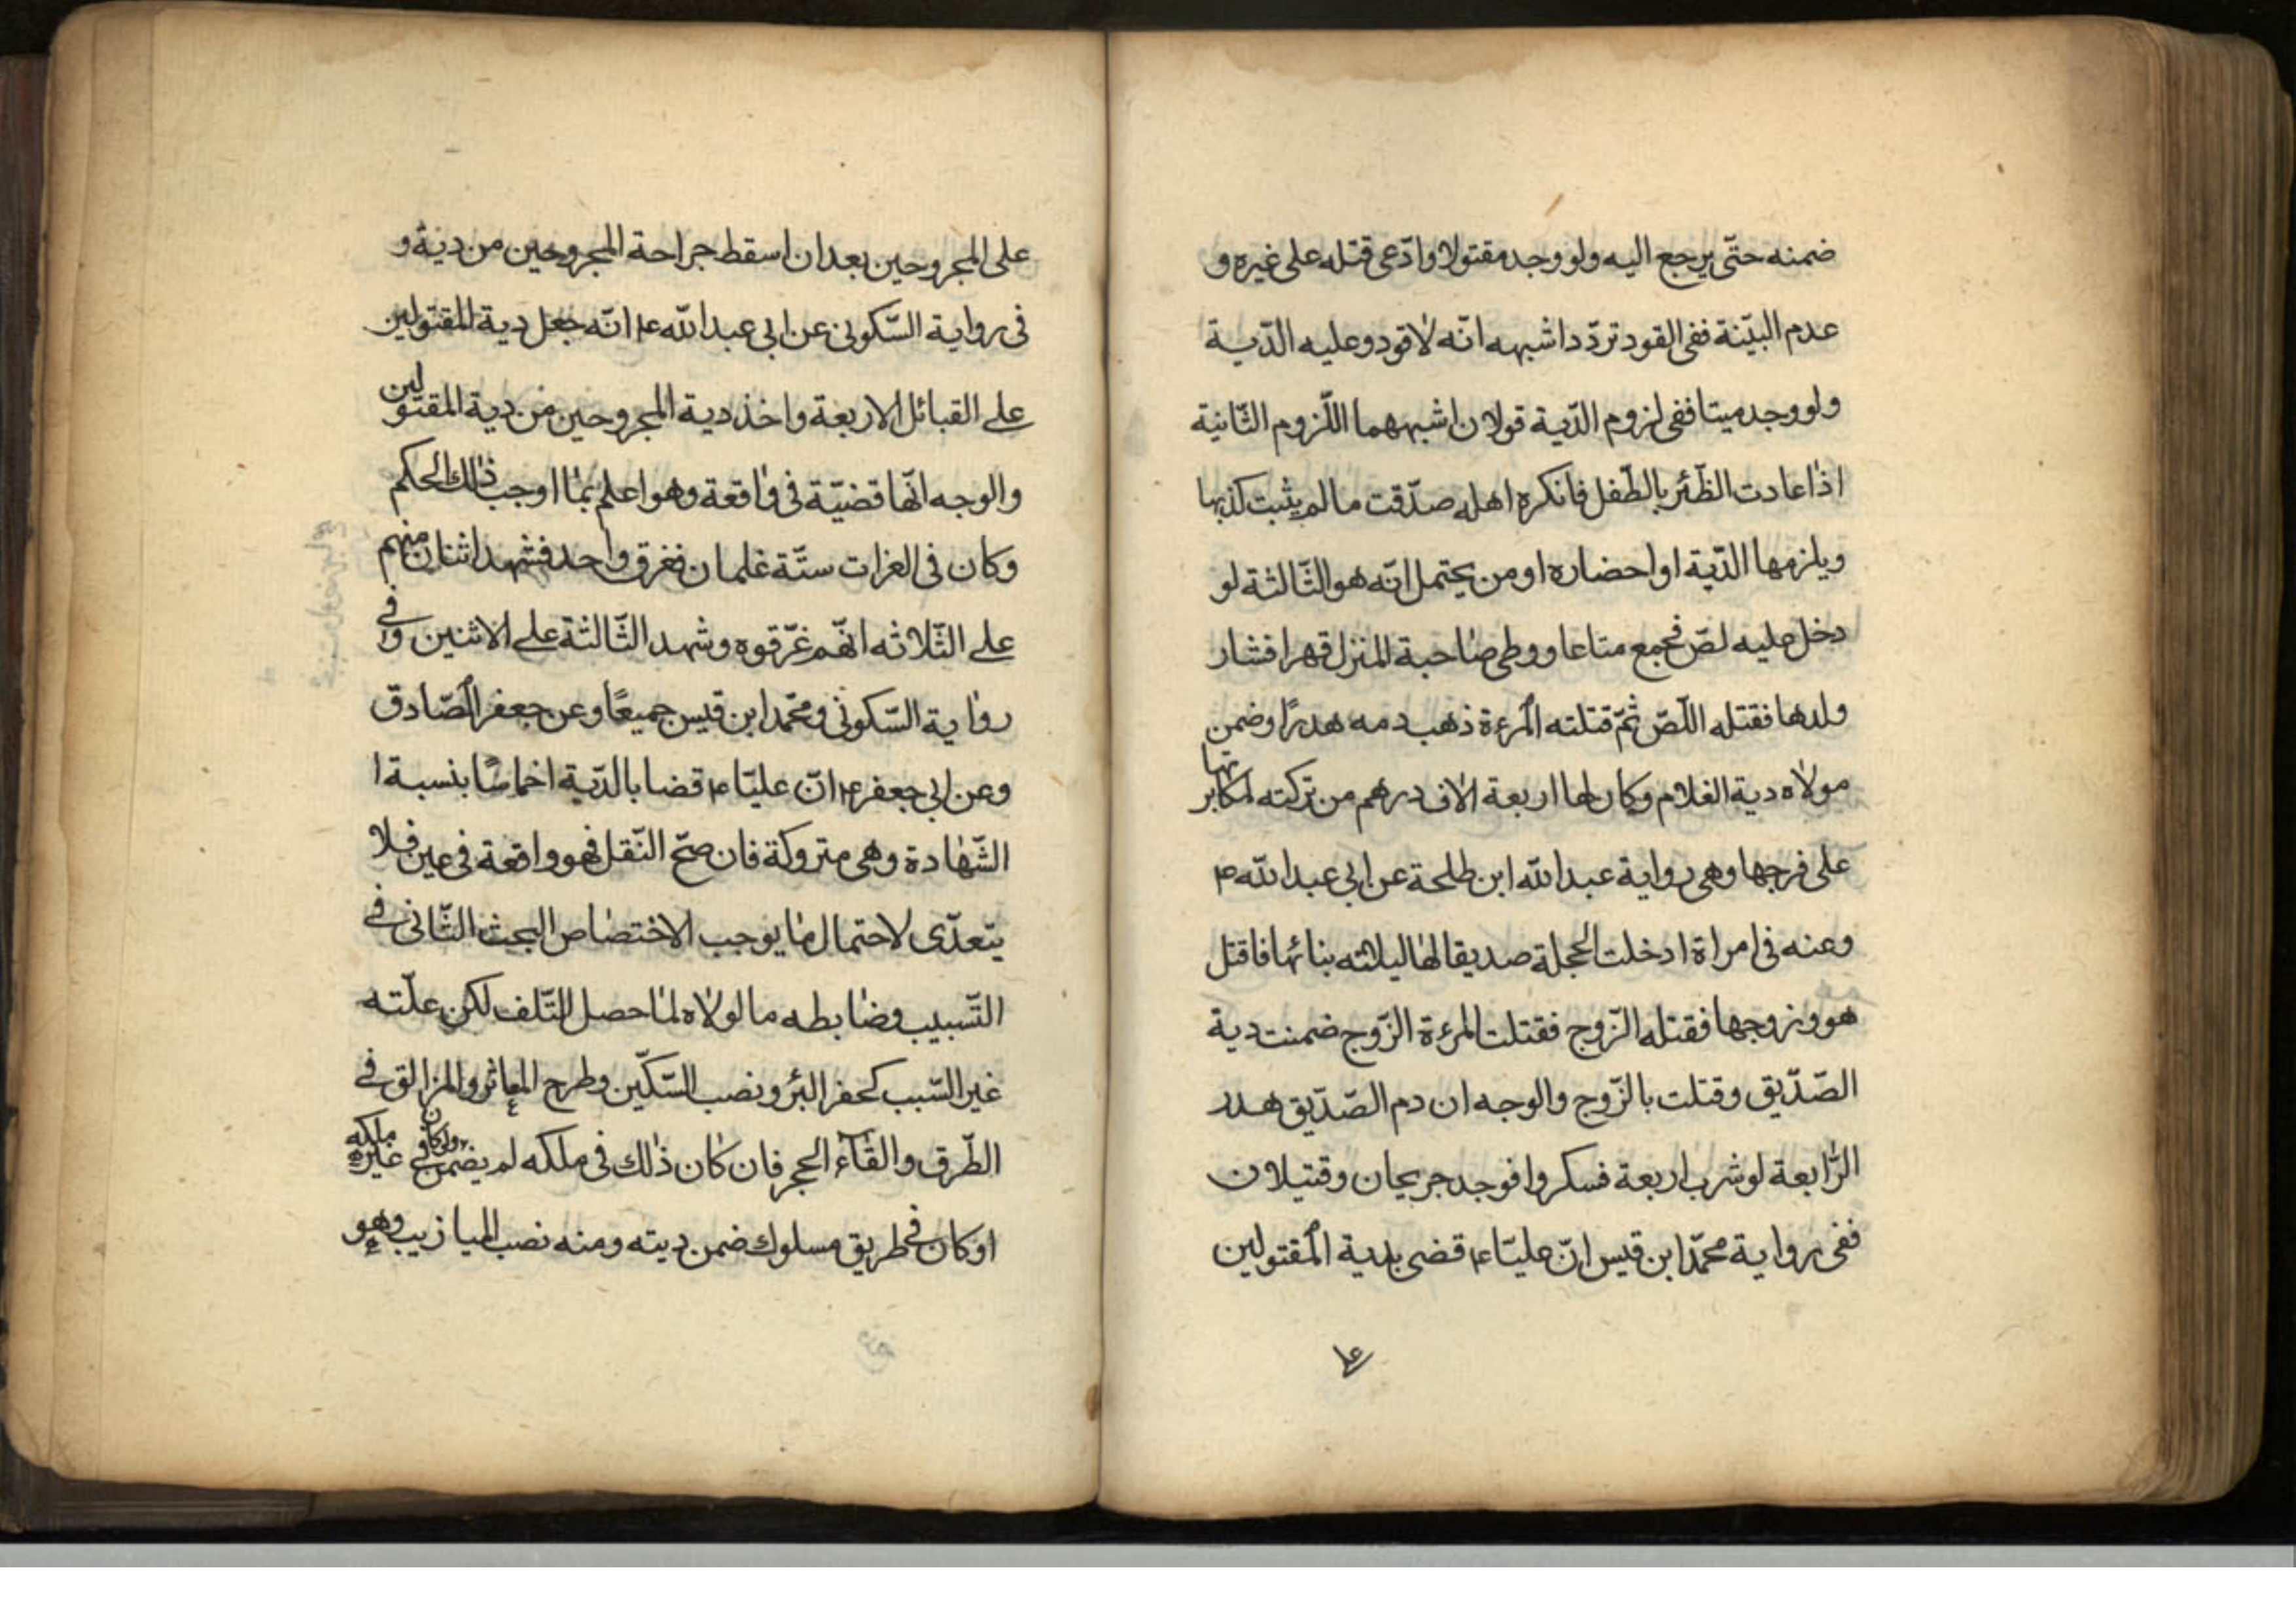 ضمنه حتّى يرجع اليه ولو وجد مقتولا وادّعى قتله على غيره و
عدم البيّنة ففى القود تردّد اشبهه انّه لاقود وعليه الدّية
ولو وجد ميتا ففى لزوم الدّية قولان اشبههما اللّزوم الثّانية
اذا عادت الظّئر بالطّفل فانكره اهله صدّقت ما لم يثبت كذبها
ويلزمها الدّية او احضاره او من يحتمل انّه هو الثّالثة لو
دخل عليه لصّ فجمع متاعا ووطى صاحبة المنزل قهرا فثار
ولدها فقتله اللّصّ ثمّ قتلته المرءة ذهب دمه هدرًا وضمن
مولاه دية الغلام وكان لها اربعة الاف درهم من تركته لمكابرتها
على فرجها وهى رواية عبد الله ابن طلحة عن ابى عبد الله ع
وعنه فى امراة ادخلت الحجلة صديقا لها ليلاته بنائها فاقتل
هو وزوجها فقتله الزّوج فقتلت المرءة الزّوج ضمنت دية
الصّدّيق وقتلت بالزّوج والوجه ان دم الصّدّيق هدر
الرّابعة لو شرب اربعة فسكروا فوجد جريحان وقتيلان
ففى رواية محمّد ابن قيس انّ عليّا ع قضى بدية المقتولين
على
على المجروحين بعد ان اسقط جراحة المجروحين من دية و
فى رواية السّكونى عن ابى عبد الله ع انّه جعل دية المقتولين
على القبائل الاربعة واخذ دية المجروحين من دية المقتولين
والوجه انّها قضيّة فى واقعة وهو اعلم بما اوجب ذلك الحكم
وكان فى الغرات ستّة غلمان فغرق واحد فشهد اثنان منهم
على الثّلاثه انّهم غرّقوه وشهد الثّالثة على الاثنين وفى
رواية السّكونى ومحمّد ابن قيس جميعًا وعن جعفر الصّادق
وعن ابى جعفر ع انّ عليّا ع قضا بالدّية اخماسًا بنسبة ا
الشّهادة وهى متروكة فان صحّ النّقل فهو واقعة فى عين فلا
يتعدّى لاحتمال ما يوجب الاختصاص البحث الثّانى فى
التّسبيب وضابطه ما لولاه لما حصل التّلف لكن علّته
غير السّبب كحفر البئر ونصب السّكّين وطرح المعاثر والمزالق فى
الطّرق والقاء الحجر فان كان ذلك فى ملكه لم يضمن ولو كان فى غير ملكه
او كان فى طريق مسلوك ضمن ديته ومنه نصب الميازيب وهو